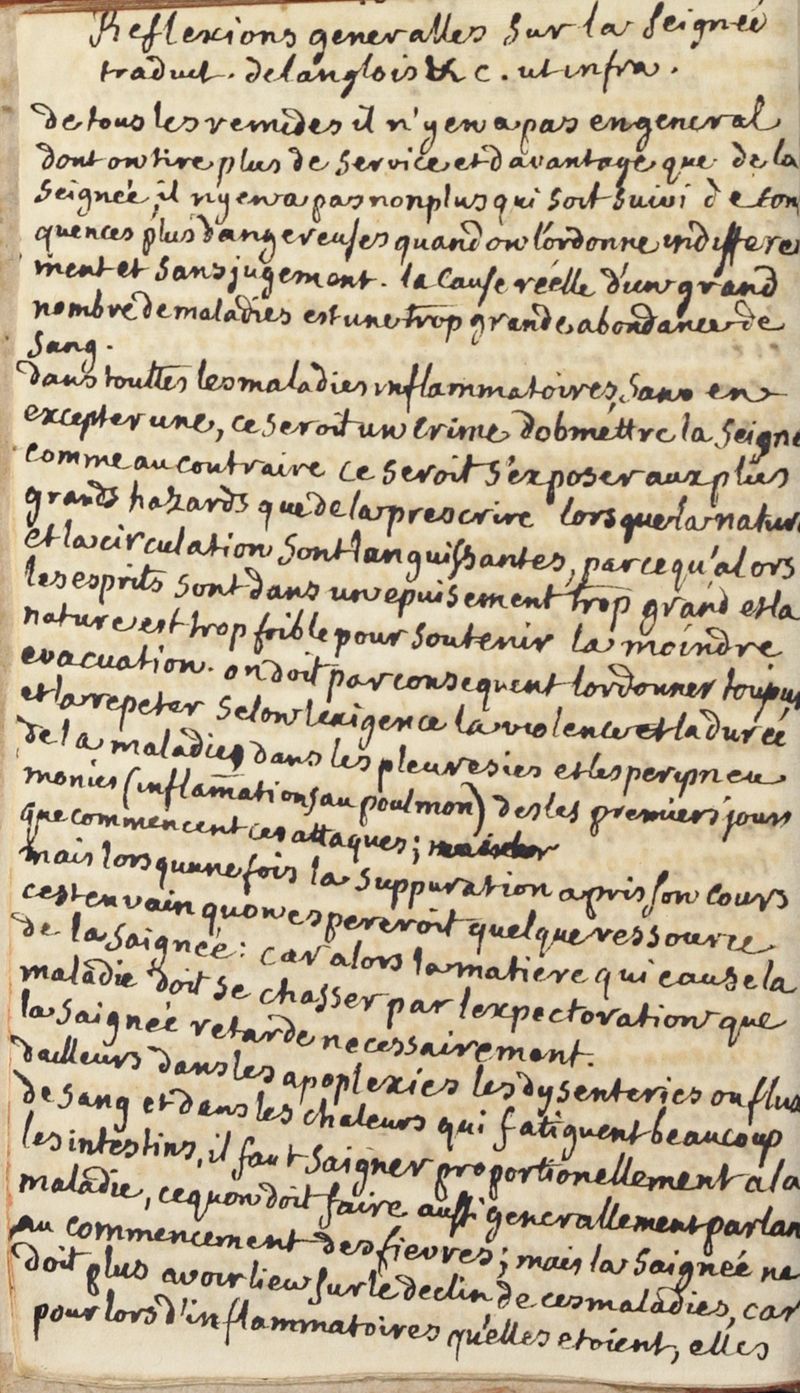 Reflexions generalles sur la seignée
traduct. de langlois &c. ut infra.
de tous les remedes il n'y en a pas en general
dont on tire plus de service et davantage que de la
seignée, il n'y en a pas non plus qui soit suivi de con
quences plus dangereuses quand on l'ordonne indiffere
ment et sans jugement. la cause réelle d'un grand
nombre de maladies est une trop grande abondance de
sang.
dans touttes les maladies inflammatoires, sans en
excepter une, ce seroit un crime dobmettre la seigné
comme au contraire ce seroit s'exposer aux plus
grands hazards que de la prescrire lorsque la natur
et la circulation sont languissantes, parce qu'alors
les esprits sont dans un epuisement trop grand et la
nature est trop foible pour soutenir la moindre
evacuation. on doit par consequent lordonner toujours
et la repeter selon lexigence la violence et la durée
de la maladie, dans les pleuresies et les peripneu
monies (inflammations au poulmon) des les premiers jours
que commencent ces attaques;
mais lors quune fois la suppuration a pris son cours
cest en vain quon espereroit quelque ressource
de la saignée: car alors la matiere qui cause la
maladie doit se chasser par lexpectoration que
la saignée retarde necessairement.
dailleurs dans les apoplexies les dysenteries ou flux
de sang et dans les chaleurs qui fatiguent beaucoup
les intestins, il faut saigner proportionellement a la
maladie, ce quon doit faire aussi generallement parlan
au commencement des fievres; mais la saignée ne
doit plus avoir lieu sur le declin de ces maladies, car
pour lors d'inflammatoires qu'elles etoient, elles